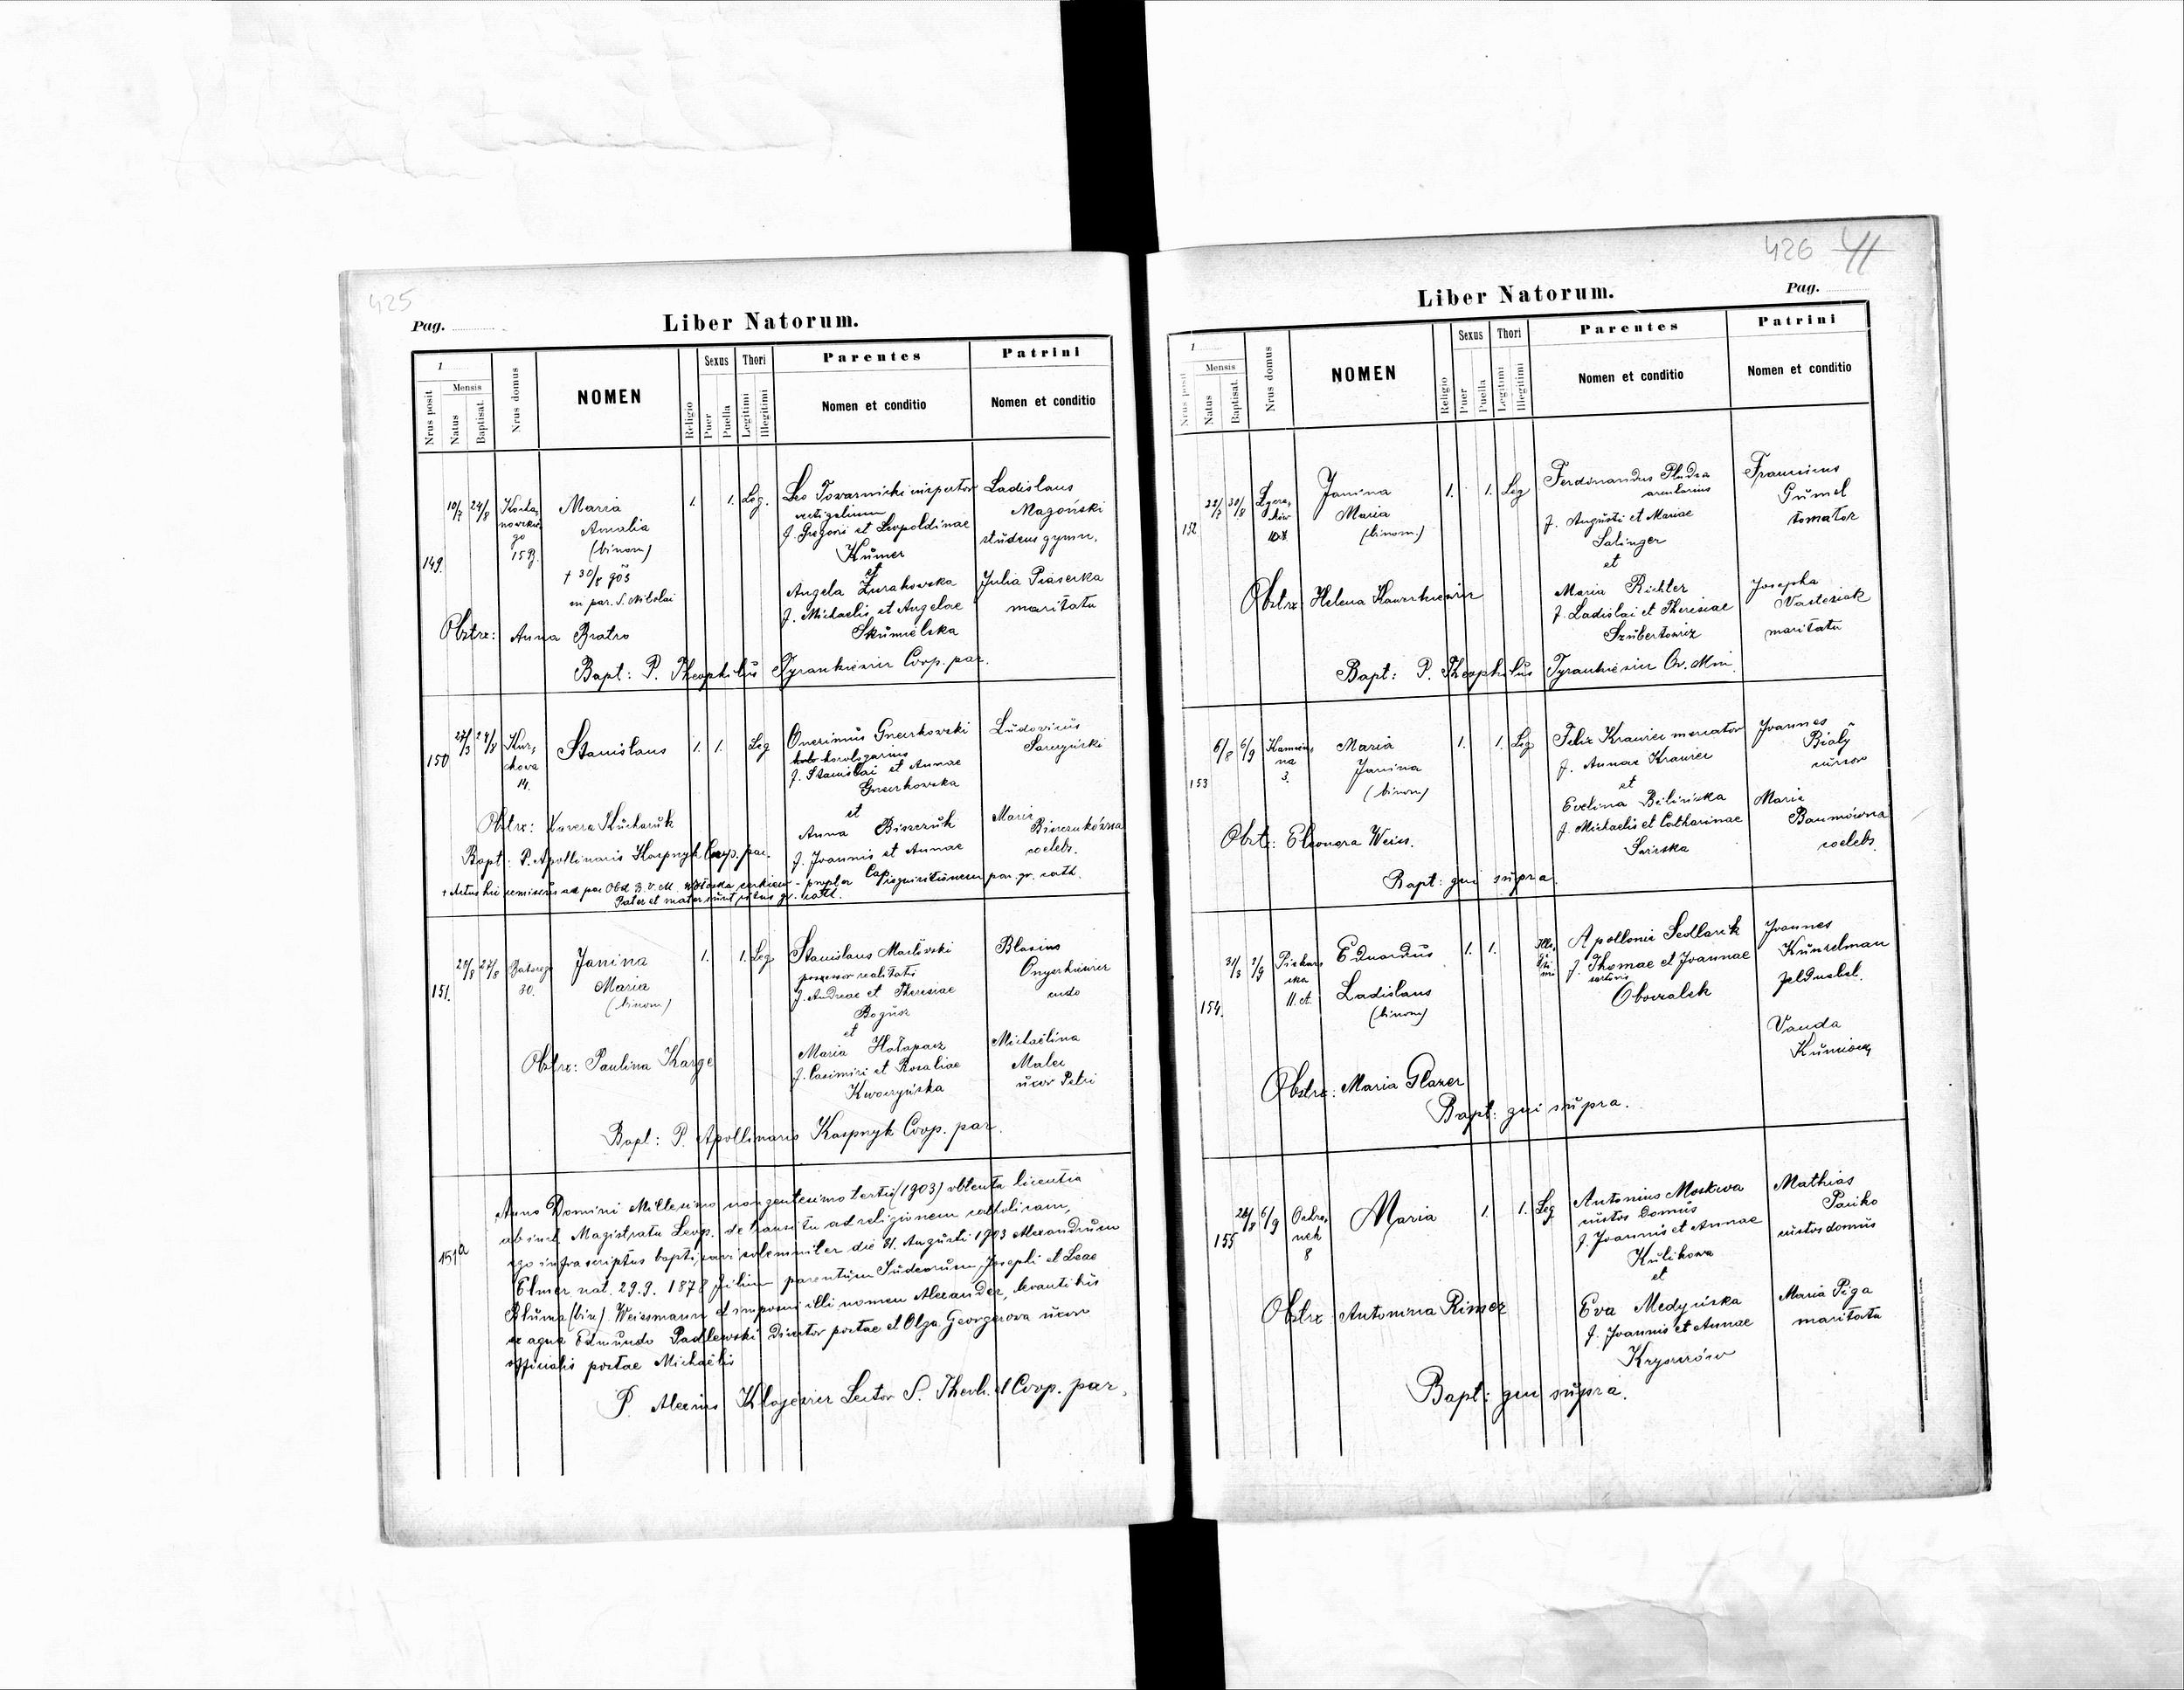 425
Pag.
Liber Natorum.
1
Mensis
Nrus posit
Natus
Baptisat.
Nrus domus
NOMEN
Religio
Sexus
Puer
Puella
Thori
Legitimi
Illegitimi
Parentes
Nomen et conditio
Patrini
Nomen et conditio
149.
10/7
24/8
15
Maria
Amalia
(binom)
in par. S. Nikolai
1.
1.
Leg.
Leo Towarnicki inspector
vectigalium
f. Gregorii et Leopoldinae
Kumer
et
Angela Żurakowska
f. Michaelis et Angelae
Skumielska
Ladislaus
Magoński
studens gymn.
Julia Piasecka
maritata
Obstr: Anna Bratro
Bapt: P. Theophilus Tyrankiewicz Coop. par.
150
24/8
Kur-
kowa
14.
Stanislaus
1.
1.
Leg
horologarius
f. Stanislai et Annae
et
Anna Biszczuk
f. Joannis et Annae
Ludovicus
Maria
Biszczukówna
coelebs.
Obstr: Kucharuk
Bapt: P. Apollinaris Kaspnyk Coop. par.
Pater et mater sunt ritus gr. cath.
151.
20/8
27/8
Batorego
30.
Janina
Maria
(binom)
1.
1.
Leg
Stanislaus Masłowski
possessor realitatis
f. Andreae et Theresiae
Bogusz
et
Maria Hałapacz
f. Casimiri et Rosaliae
Kwaczyńska
Blasius
Onyszkiewicz
Michaëlina
Malec
uxor Petri
Obstr: Paulina Karge
Bapt: P. Apollinaris Kaspnyk Coop. par.
151a
Anno Domini Millesimo nongentesimo tertii (1903) obtenta licentia
ab incl. Magistratu Leop. de transitu ad religionem catholicam,
ego infrascriptus baptizavi solemniter die 31. Augusti 1903 Alexandrum
Elmer nat. 29.9. 1878 filium parentum Judeorum Josephi et Leae
Bluma (bin) Weissmann et imposui illi nomen Alexander, levantibus
ex aqua Edmundo Padlewski director portae et Olga Georgerowa uxor
officialis portae Michaëlis
P. Alexius Klojewicz Lector S. Theol. et Coop. par.
426
41
Liber Natorum.
Pag.
1
Mensis
Nrus posit
Natus
Baptisat.
Nrus domus
NOMEN
Religio
Sexus
Puer
Puella
Thori
Legitimi
Illegitimi
Parentes
Nomen et conditio
Patrini
Nomen et conditio
152
30/8
Janina
Maria
(binom.)
1.
1.
Leg
Ferdinandus Pludra
arcularius
f. Augusti et Mariae
Salinger
et
Maria Richter
f. Ladislai et Theresiae
Szubertowicz
Franciscus
Gumel
tornator
Josepha
maritata
Obstr: Helena Hawrkiewicz
Bapt: P. Theophilus Tyrankiewicz Or. Min.
153
6/8
6/9
3.
Maria
Janina
(binom)
1.
1.
Leg
Felix Krawiec mercator
f. Annae Krawiec
et
Evelina Bilińska
f. Michaelis et Catharinae
Joannes
Biały
cursor
Maria
Baumówna
coelebs.
Obstr: Eleonora Weiss.
Bapt: qui supra.
154.
Piekar-
ska
Eduardus
Ladislaus
(binom)
1.
1.
Ille-
gi-
ti-
mi
Apollonia Sedlarik
f. Thomae et Joannae
sartoris
Obowalek
Joannes
Kunzelman
Vanda
Obstr: Maria Glazer
Bapt: qui supra.
155
28/8
6/9
Ochro-
nek
8
Maria
1.
1.
Leg
Antonius Moskwa
custos domus
f. Joannis et Annae
Kulikowa
et
Eva Medyńska
f. Joannis et Annae
Kryszców
Mathias
custos domus
Maria Piga
maritata
Obstr: Antonina Rimer
Bapt: qui supra.